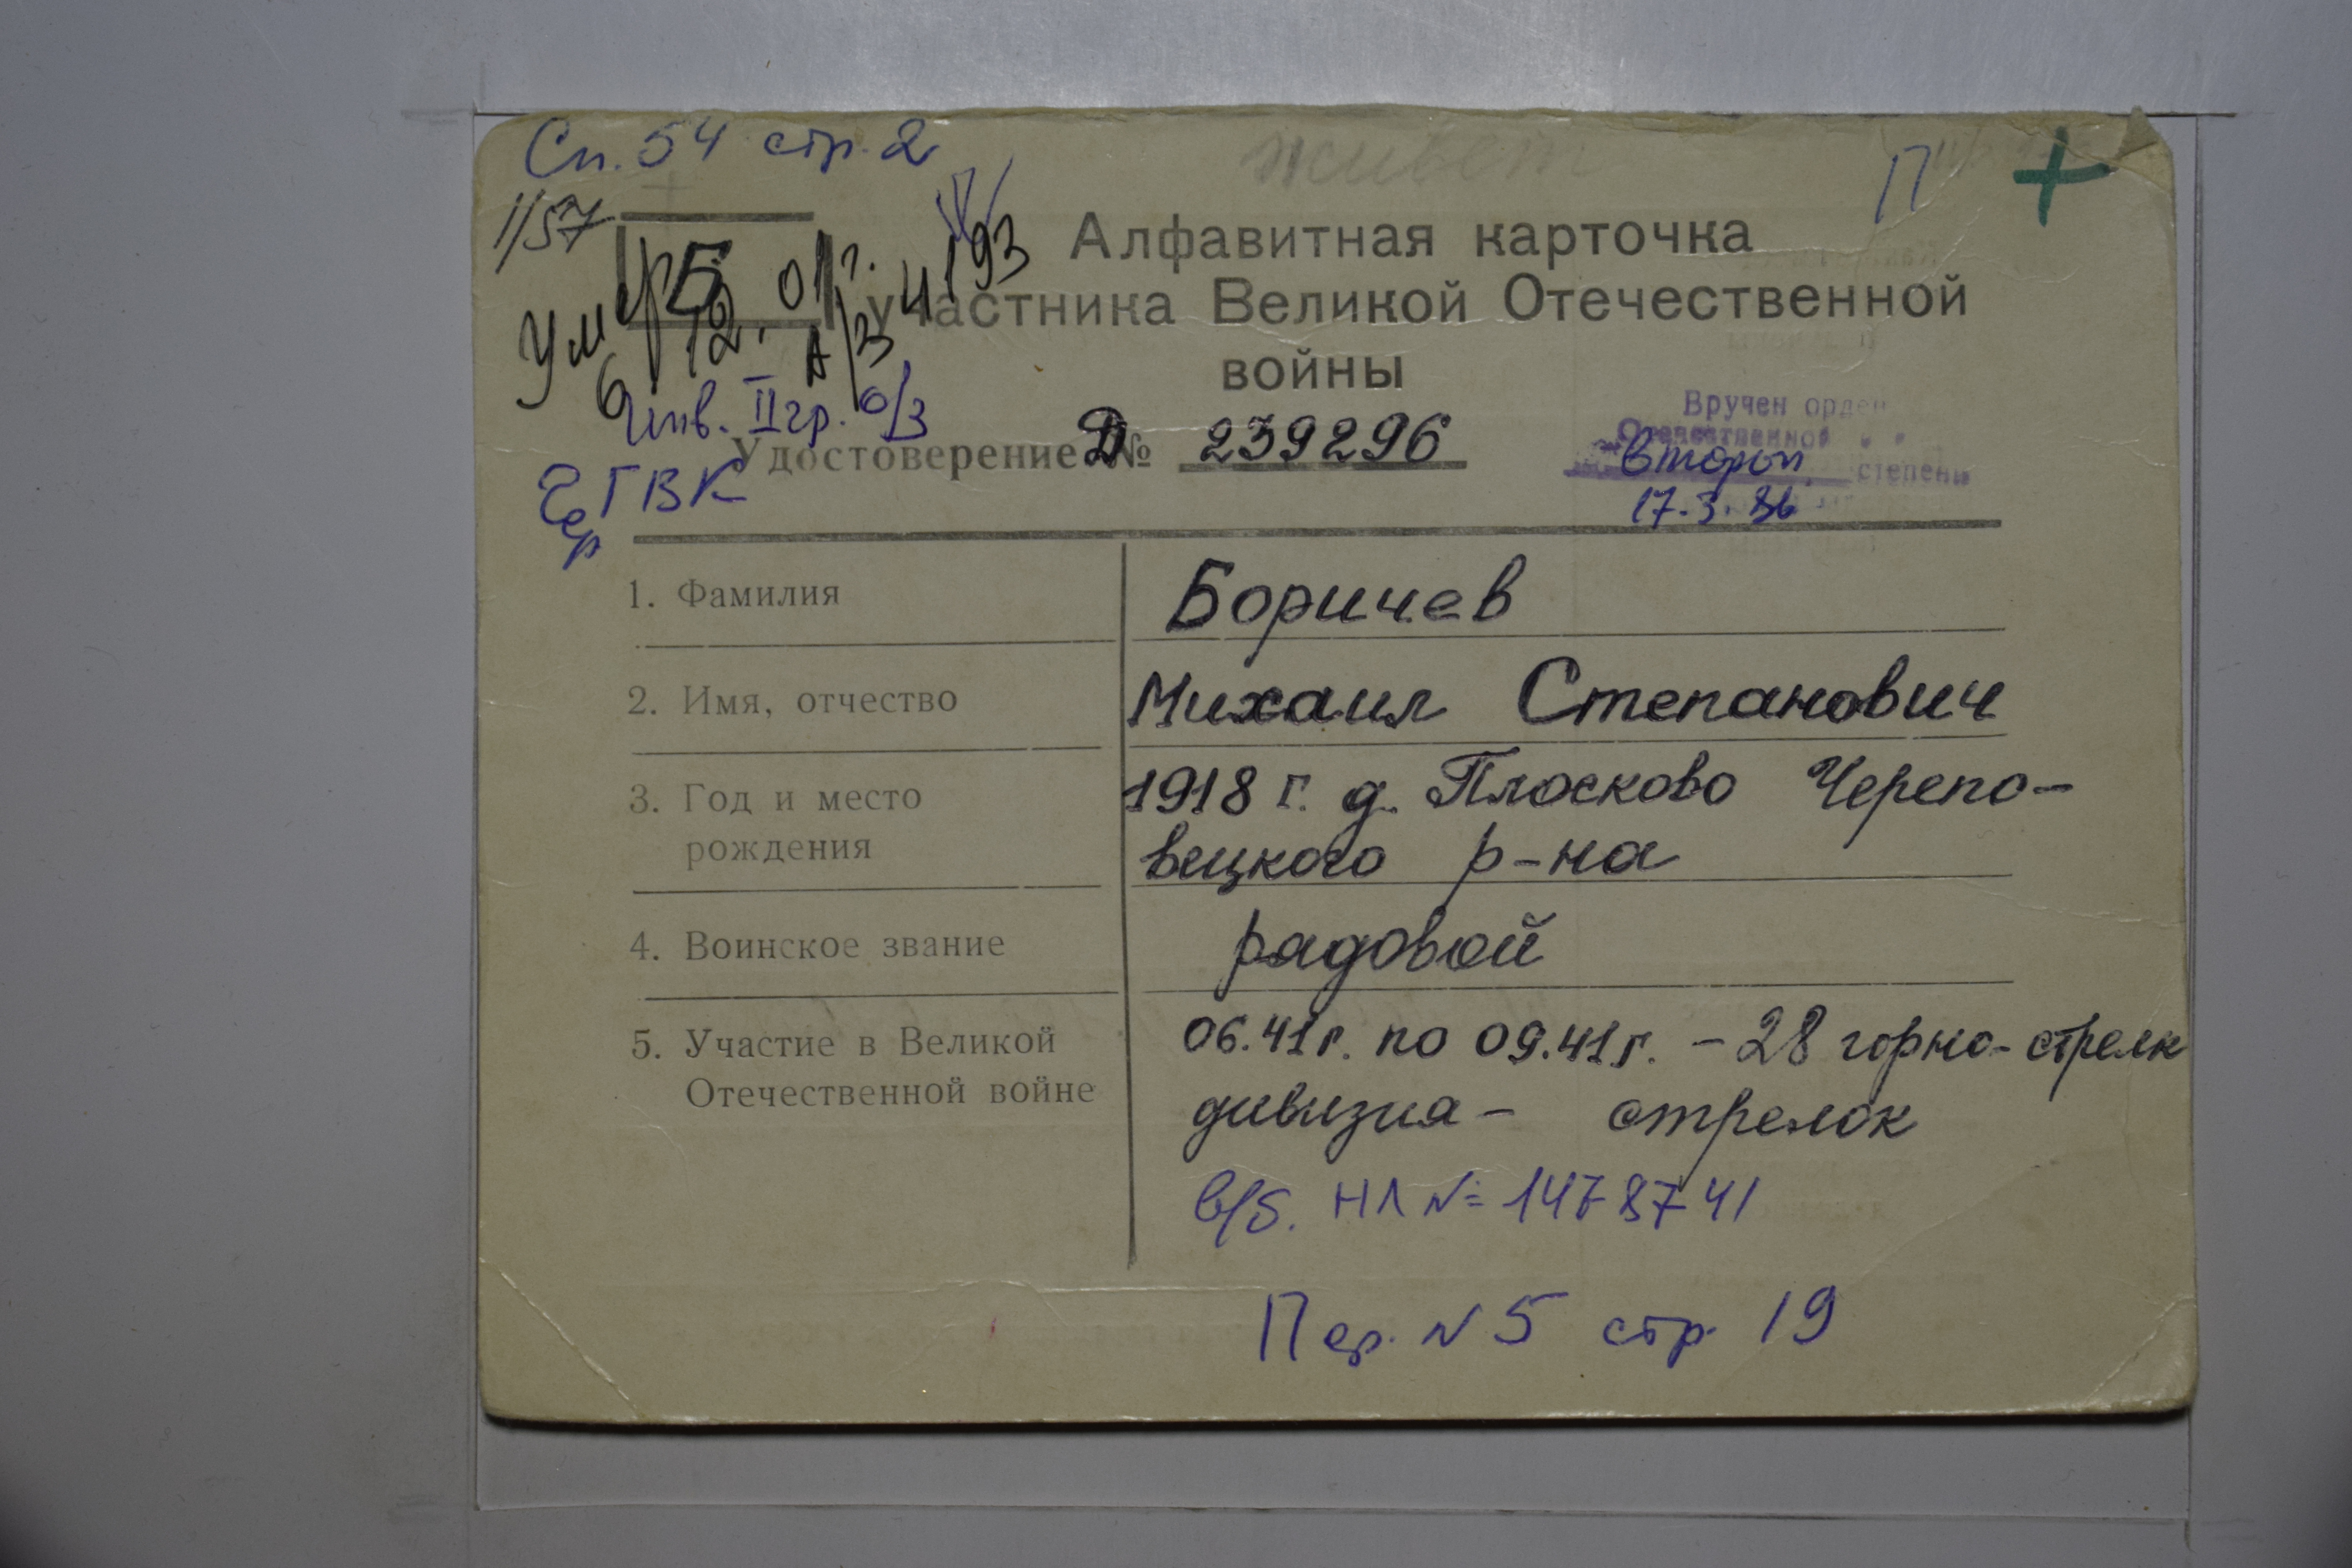 Сп. 54 стр. 2
живет
П
+
1/57
Б
Умер
6.12.01г.
А/З 4193
Алфавитная карточка
участника Великой Отечественной
войны
Инв. II гр. о/з
Чер ГВК
Удостоверение Д № 239296
Вручен орден
Отечественной
второй степени
17.3.86
1. Фамилия
Боричев
2. Имя, отчество
Михаил Степанович
3. Год и место
рождения
1918 г. д. Плосково Черепо-
вецкого р-на
4. Воинское звание
рядовой
5. Участие в Великой
Отечественной войне
06.41г. по 09.41г. - 28 горно-стрелк
дивизия - стрелок
в/б. НЛ № 1478741
Пер. N 5 стр 19